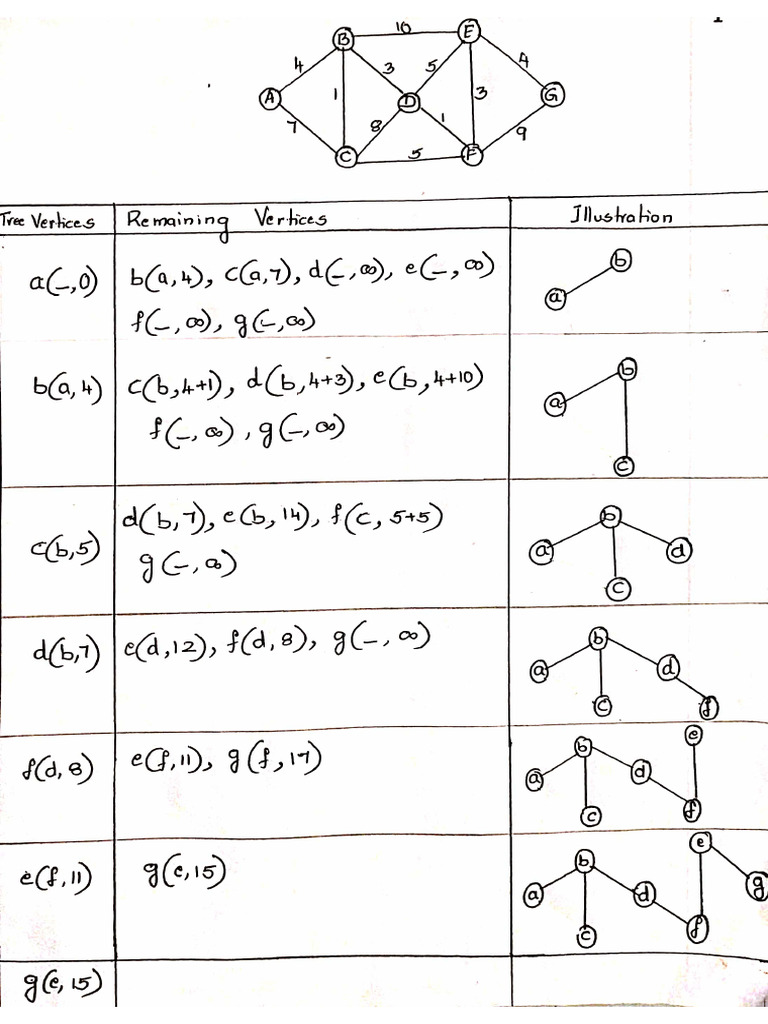 B 10 E
4 3 5 4
A 1 D 3 G
7 8 1 9
C 5 F
Tree Vertices Remaining Vertices Illustration
a(–,0) b(a,4), c(a,7), d(–,∞), e(–,∞)
f(–,∞), g(–,∞)
a b
b(a,4) c(b,4+1), d(b,4+3), e(b,4+10)
f(–,∞), g(–,∞)
a b
c
c(b,5) d(b,7), e(b,14), f(c,5+5)
g(–,∞)
a b d
c
d(b,7) e(d,12), f(d,8), g(–,∞)
a b d
c f
f(d,8) e(f,11), g(f,17)
a b d e
c f
e(f,11) g(e,15)
a b d e g
c f
g(e,15)